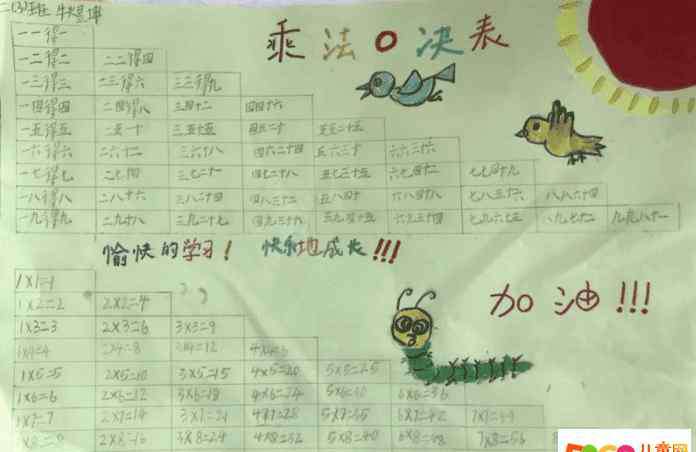 二(3)班
乘法口决表
一一得一
一二得二 二二得四
一三得三 二三得六 三三得九
一四得四 二四得八 三四十二 四四十六
一五得五 二五一十 三五十五 四五二十 五五二十五
一六得六 二六十二 三六十八 四六二十四 五六三十 六六三十六
一七得七 二七十四 三七二十一 四七二十八 五七三十五 六七四十二 七七四十九
一八得八 二八十六 三八二十四 四八三十二 五八四十 六八四十八 七八五十六 八八六十四
一九得九 二九十八 三九二十七 四九三十六 五九四十五 六九五十四 七九六十三 八九七十二 九九八十一
愉快的学习! 快乐地成长!!!
加油!!!
1×1=1
1×2=2 2×2=4
1×3=3 2×3=6 3×3=9
1×4=4 2×4=8 3×4=12
1×5=5 2×5=10 3×5=15 4×5=20 5×5=25
1×6=6 2×6=12 3×6=18 4×6=24 5×6=30 6×6=36
1×7=7 2×7=14 3×7=21 4×7=28 5×7=35 6×7=42 7×7=49
2×8=16 3×8=24 4×8=32 5×8=40 6×8=48 7×8=56
儿童网